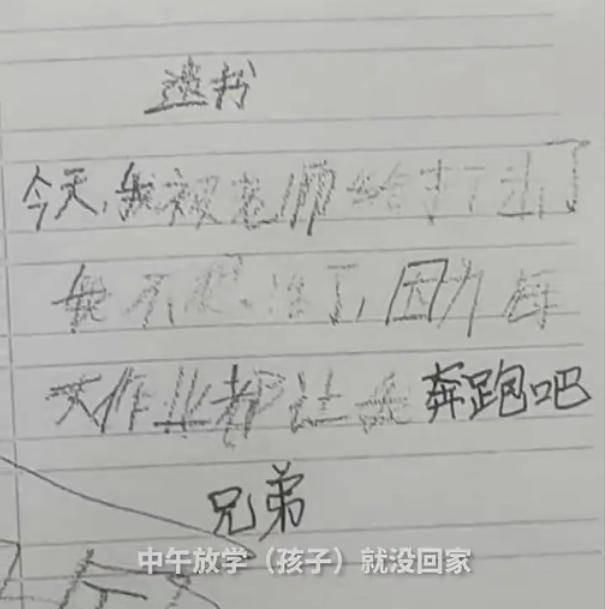 遗书
今天,我被老师给打了出了
我不想活了,因为每
天作业都让我奔跑吧
兄弟
中午放学(孩子)就没回家